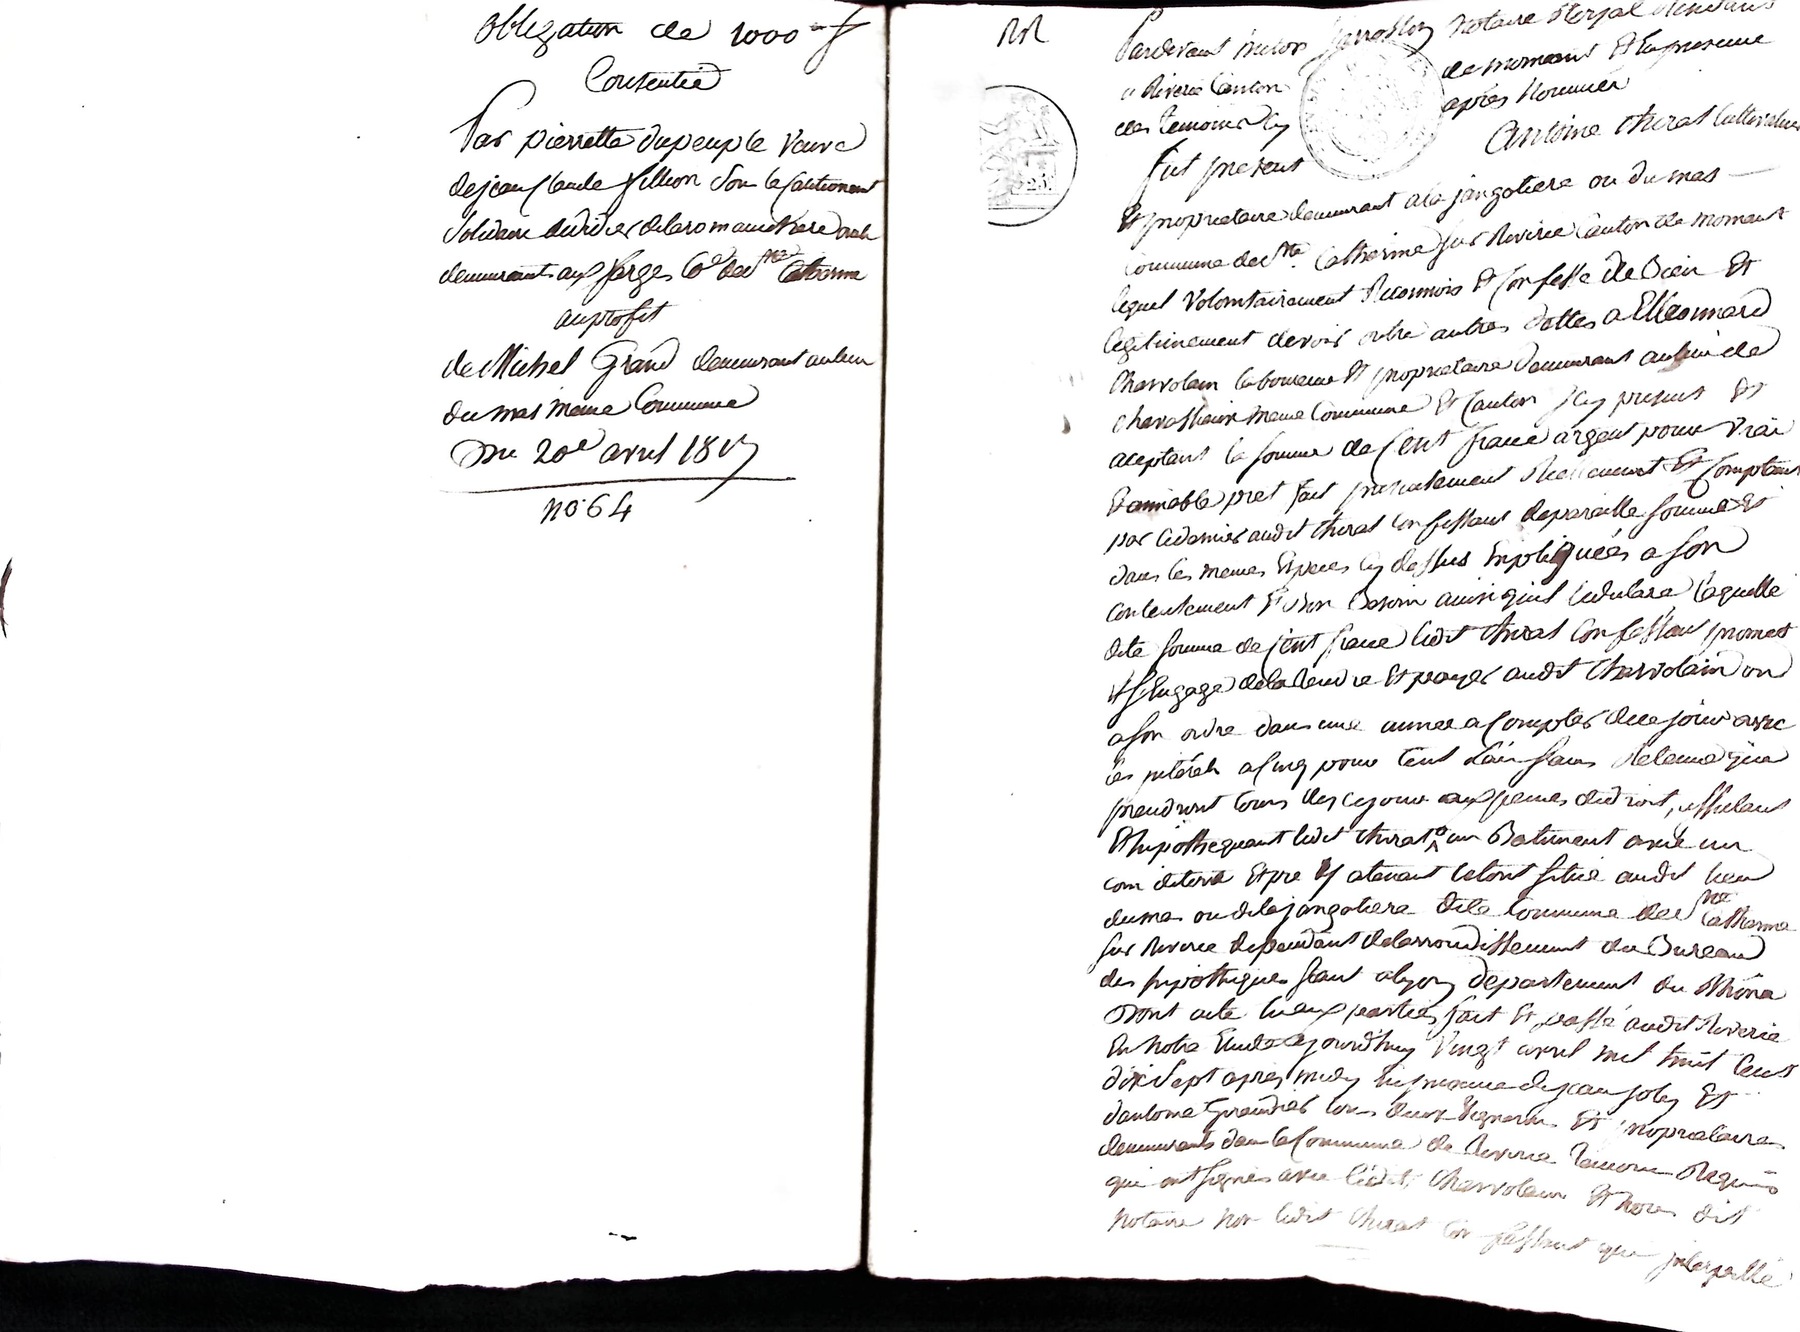 Obligation de 1000 f
Consentie
Par pierrette dupeuple Veuve
de jean Claude fillion sou le Cautionement
Solidaire dudidier delaromanchere
demeurants aux farges Cne de Ste Catherine
au profit
de Michel Grand demeurant au lieu
du mas meme Commune
Du 20e avril 1817
no. 64
Pardevant notaire Royal Résidant
a Riverie Canton de mornant Et En presence
des temoins cy après Nommés
fut present Antoine thizat Cultivateur
Et proprietaire demeurant a la jangotiere ou du mas
Commune de Ste. Catherine sur Riverie Canton de mornant
lequel Volontairement Reconnois Et Confesse de Bien Et
legitimement devoir outre autres dettes a Eléonnard
Charvolain laboureur Et proprietaire demeurant au lieu de
meme Commune Et Canton icy present Et
aceptant la somme de Cent franc argent pour Vrai
Et amiable pret fait presentement Réellement Et Comptant
par ce dernier audit thizat Confessant de pareille somme Et
dans les memes Especes cy dessus Expliquées a son
contentement Et Bon Besoin ainsi qu'il le déclare laquelle
dite somme de Cent franc ledit thizat Confessant promet
Et s'Engage de la Rendre Et payer audit Charvolain ou
a son ordre dans une année a Compter de ce jour avec
les intérêts a Cinq pour Cent l'an sans Retenue que
prendront Cours des ce jour aux peines de droit, affectant
Et hipothequant ledit thizat un Batiment avec un
coin de terre Et pré y atenant le tout situé audit lieu
du mas ou de la jangotiere dite Commune de Ste Catherine
sur Riverie dependant de larrondissement du Bureau
des hipothèques séant a lyon département du Rhône
Dont acte lu aux parties, fait Et passé audit Riverie
En notre Etude aujourd'huy Vingt avril mil huit Cent
dix Sept après midy En presence de jean joly Et
d'antoine tous deux Vignerons Et proprietaires
demeurants dans la Commune de Riverie temoins Requis
qui ont signés avec ledit Charvolain Et nous dit
Notaire non ledit thizat Confessant que interpellé